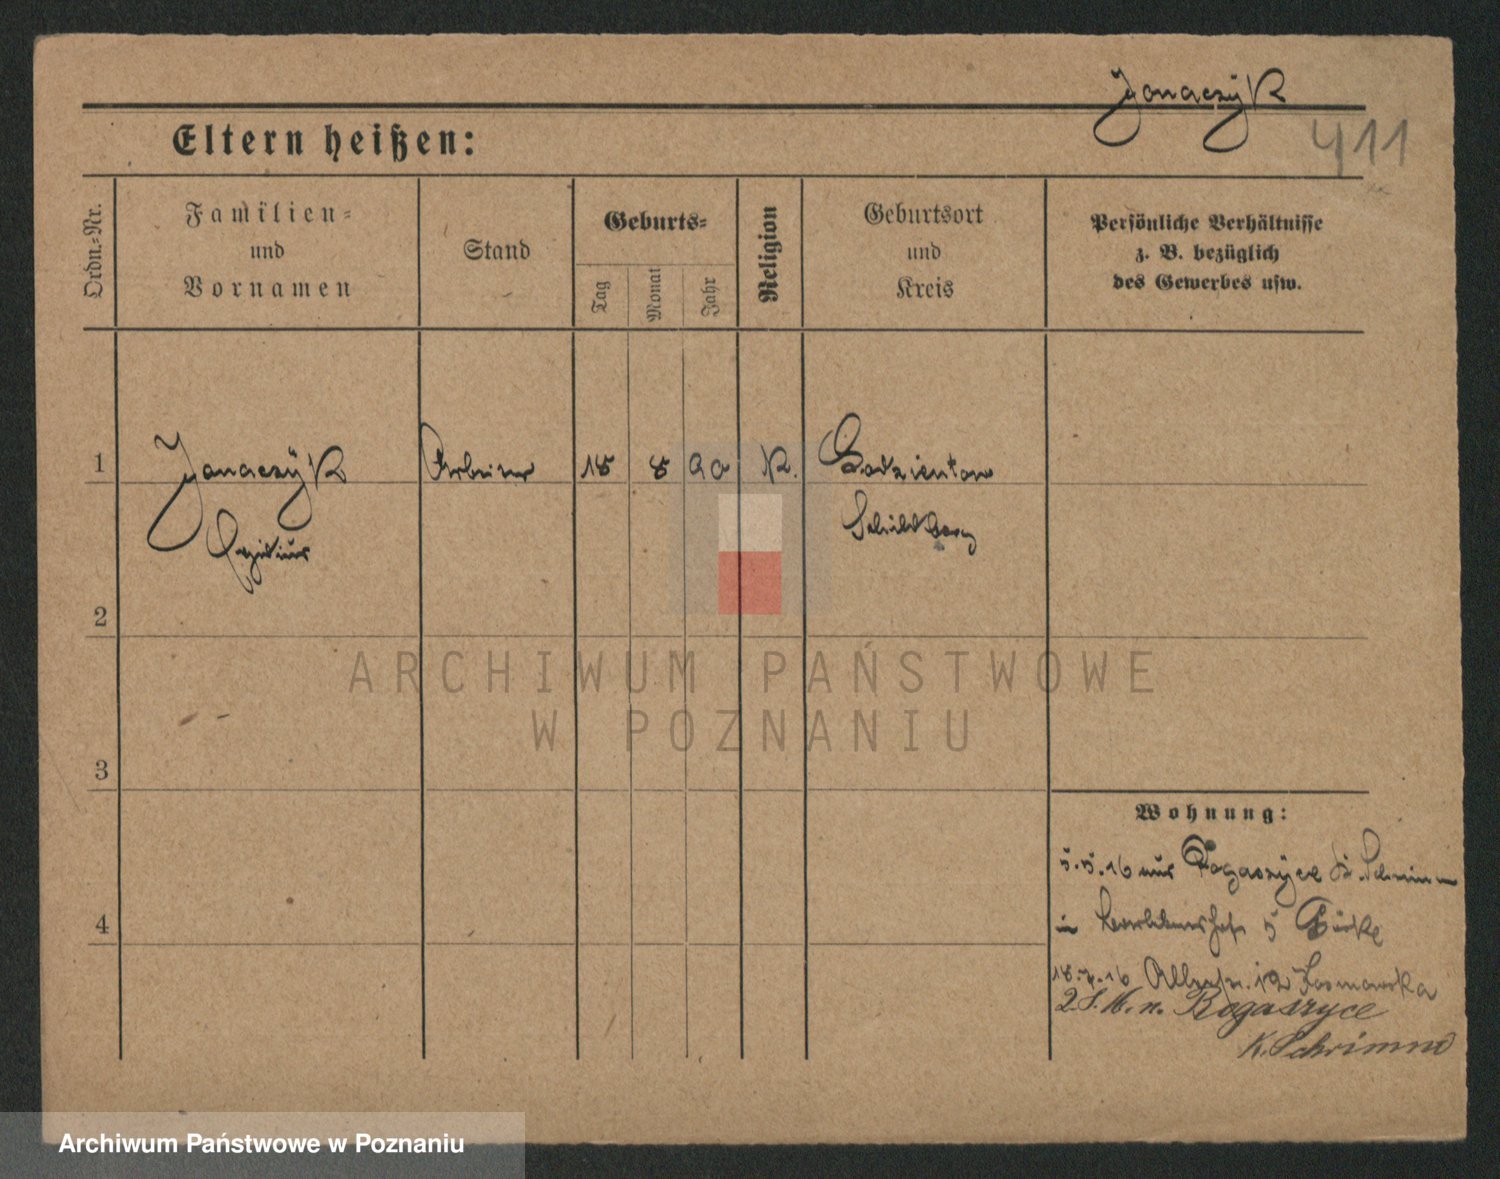 Janaczÿk
411
Eltern heißen:
Ordn.-Nr.
Familien-
und
Vornamen
Stand
Geburts-
Tag
Monat
Jahr
Religion
Geburtsort
und
Kreis
Persönliche Verhältnisse
z. B. bezüglich
des Gewerbes usw.
1
Janaczÿk
Arbeiter
18
8
90
K.
Schildberg
2
ARCHIWUM PAŃSTWOWE
W POZNANIU
3
Wohnung:
5.5.16 aus Rogaszÿce
in 5
4
18.7.16 12
2.8.16. n. Rogaszyce
K. Schrimm
Archiwum Państwowe w Poznaniu